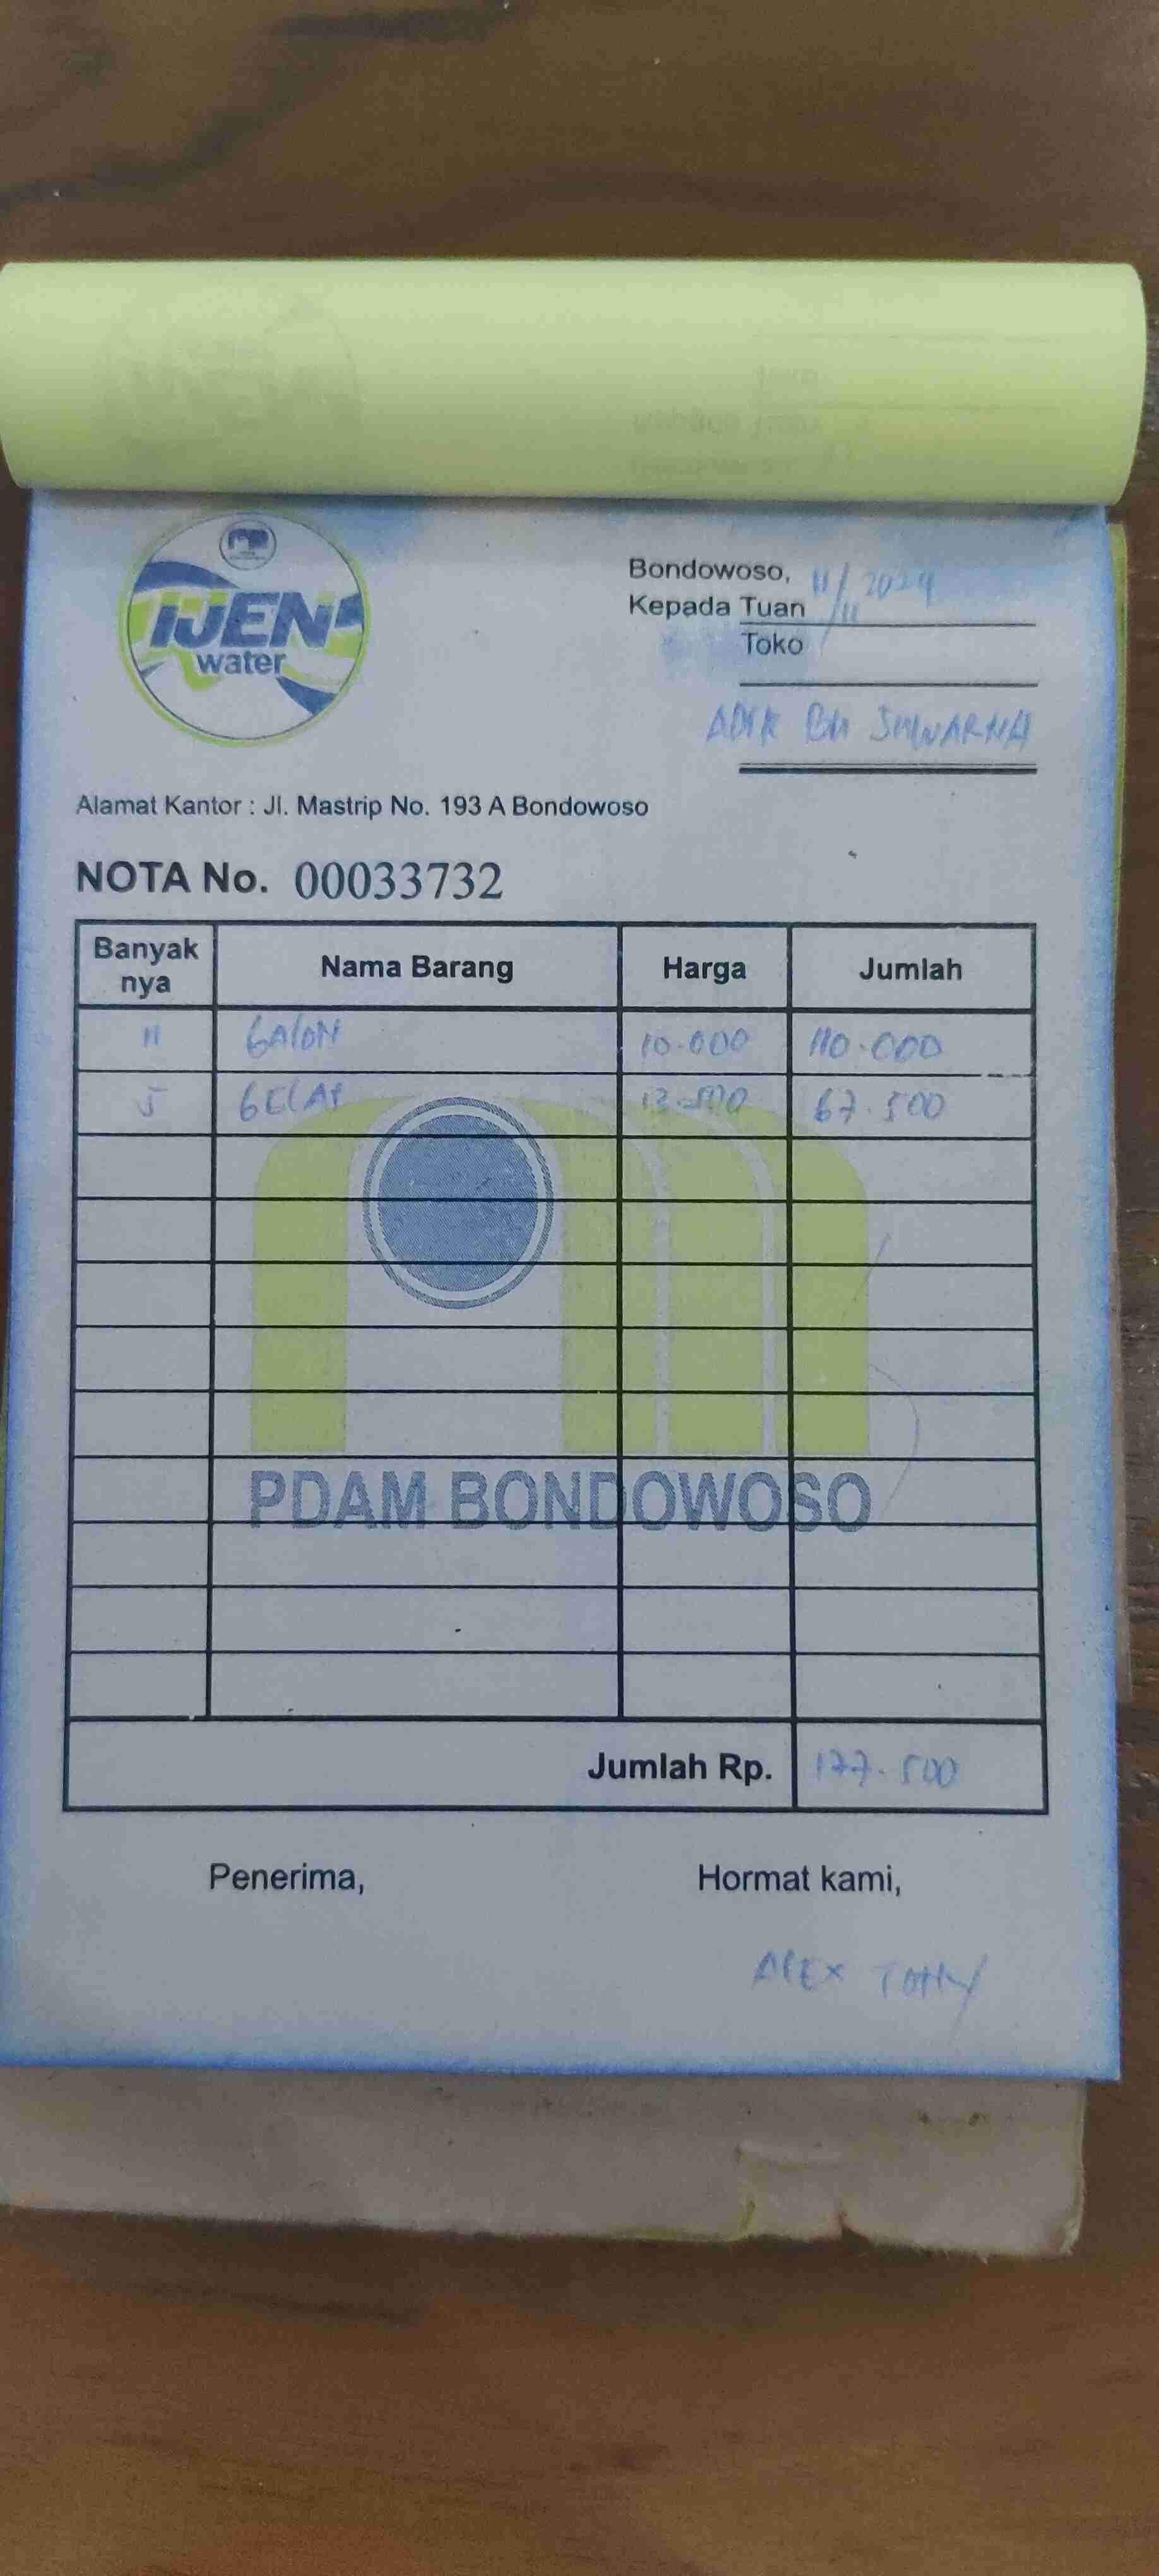 IJEN
water
Bondowoso, 11/11/2024
Kepada Tuan
Toko
ADIK BU SUWARNA
Alamat Kantor : Jl. Mastrip No. 193 A Bondowoso
NOTA No. 00033732
Banyak nya Nama Barang Harga Jumlah
11 GALON 10.000 110.000
5 GELAS 13.500 67.500
PDAM BONDOWOSO
Jumlah Rp. 177.500
Penerima, Hormat kami,
ALEX TONY